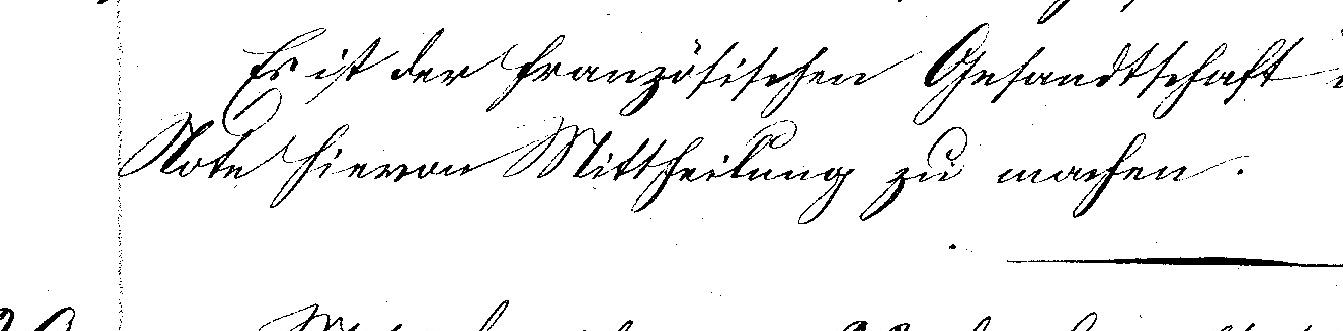 Es ist der französischen Gesandtschaft
Note hievon Mittheilung zu machen.